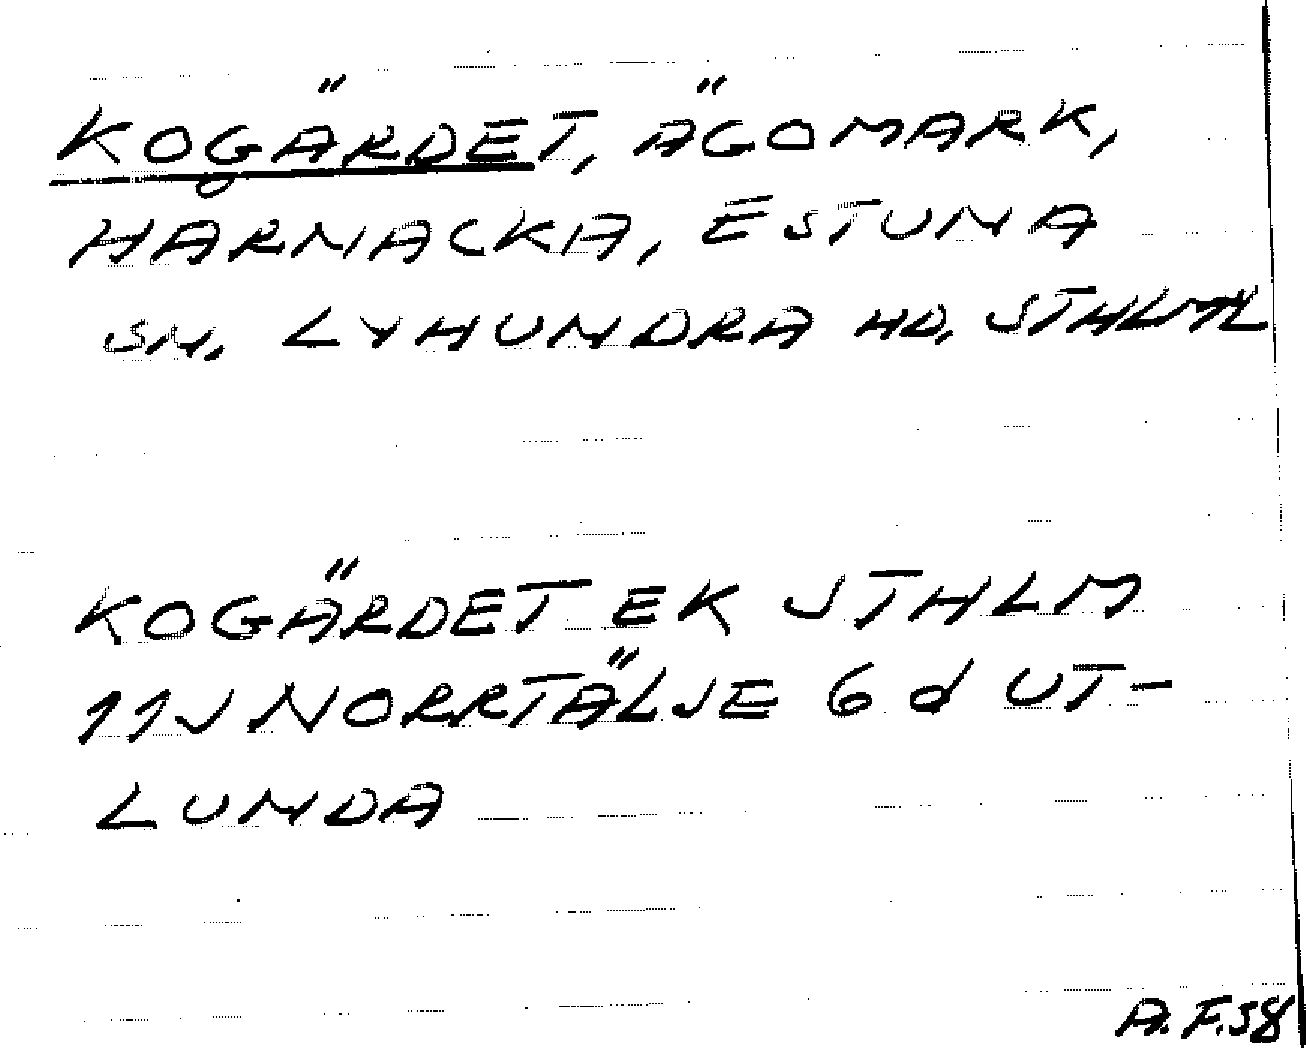 KOGÄRDET, ÄGOMARK,
HÅRNACKA, ESTUNA
SN. LYHUNDRA HD, STHLM L
KOGÄRDET EK STHLM
11J NORRTÄLJE 6 d UT-
LUNDA
A. F. 38